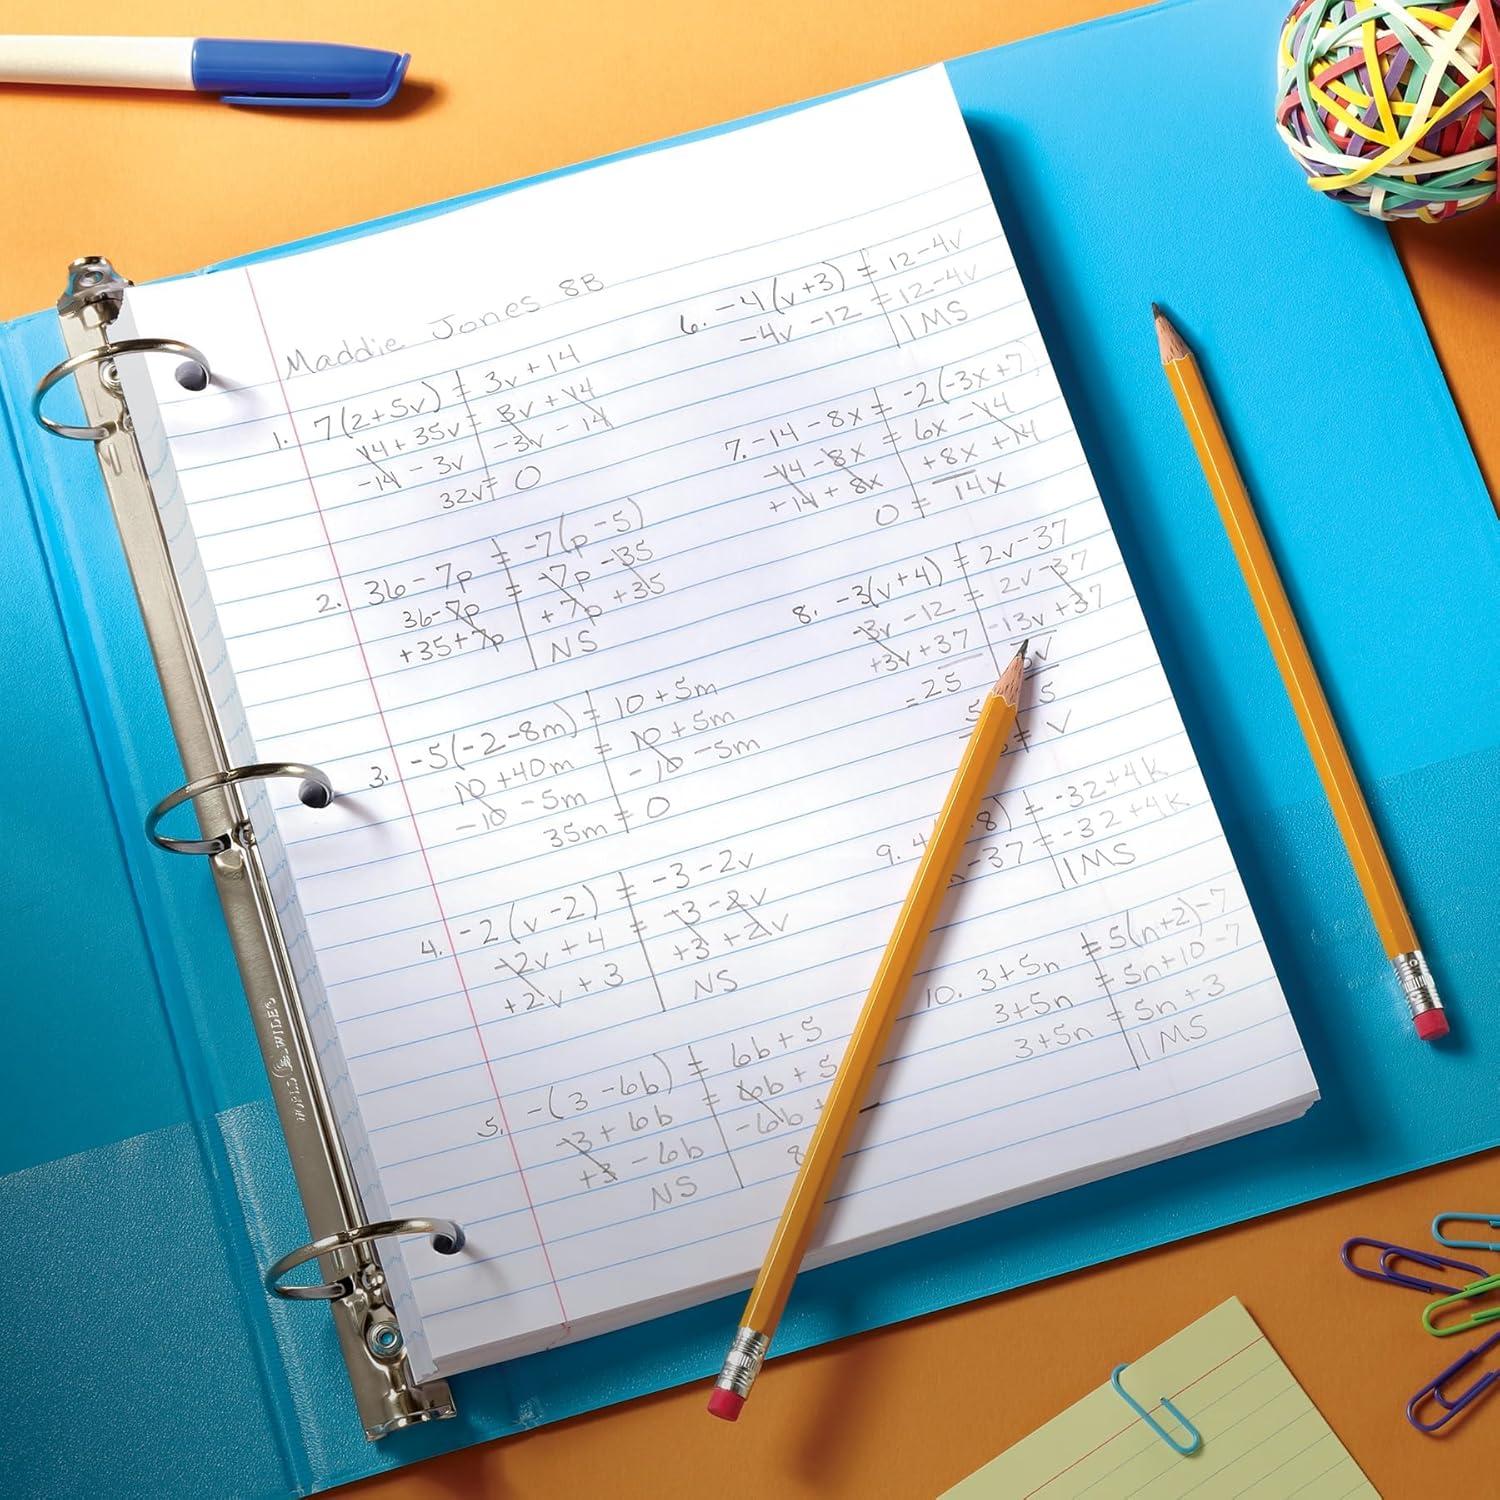 Maddie Jones 8B
1. 7(2+5v) = 3v + 14
14 + 35v = 3v + 14
-14 - 3v -3v - 14
32v = 0
2. 36 - 7p = -7(p - 5)
36 - 7p = -7p - 35
+35 + 7p +7p +35
NS
3. -5(-2-8m) = 10 + 5m
10 + 40m = 10 + 5m
-10 - 5m -10 - 5m
35m = 0
4. -2(v-2) = -3 - 2v
-2v + 4 = -3 - 2v
+2v + 3 +3 + 2v
NS
5. -(3-6b) = 6b + 5
-3 + 6b = 6b + 5
+3 - 6b -6b +
NS 8
6. -4(v+3) = 12 - 4v
-4v - 12 = 12 - 4v
IMS
7. -14 - 8x = -2(-3x+7)
-14 - 8x = 6x - 14
+14 + 8x +8x +14
0 = 14x
8. -3(v+4) = 2v - 37
-3v - 12 = 2v - 37
+3v + 37 -13v +37
= 25 5v
5 5
= v
9. 4 8) = -32 + 4k
-37 = -32 + 4k
IMS
10. 3 + 5n = 5(n+2) - 7
3 + 5n = 5n + 10 - 7
3 + 5n = 5n + 3
IMS
WORLD WIDE®